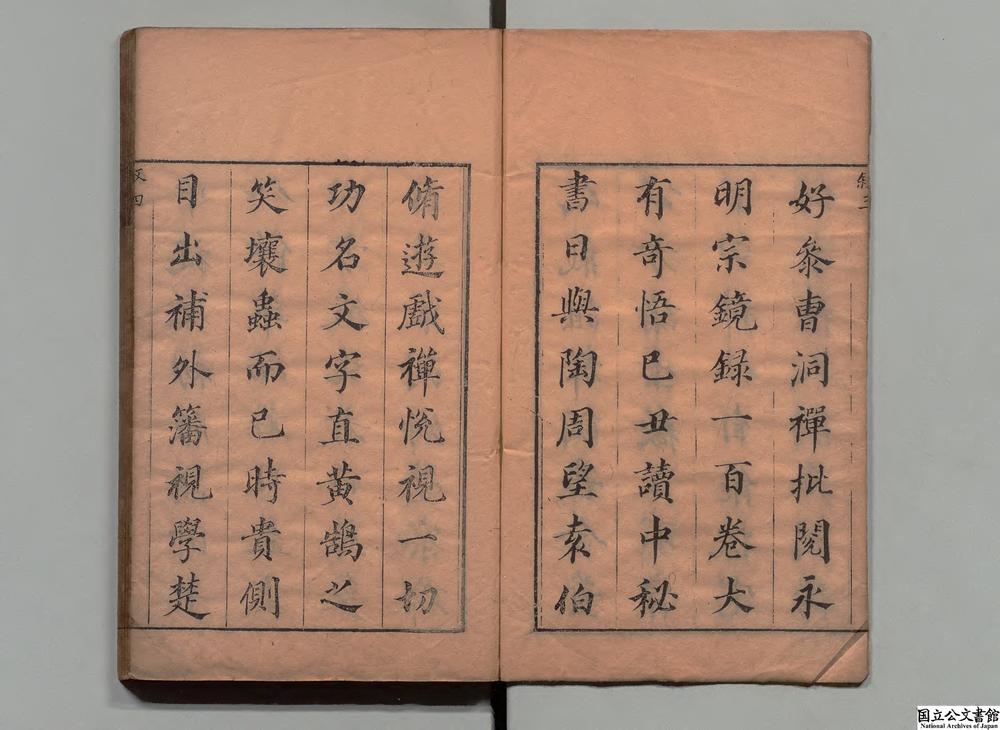 好叅曹洞禪批閱永
明宗鏡録一百卷大
有奇悟已丑讀中秘
書日與陶周望袁伯
脩遊戲禪恱視一切
功名文字直黃鵠之
笑壤蟲而已時貴側
目出補外籓視學楚
国立公文書館
National Archives of Japan